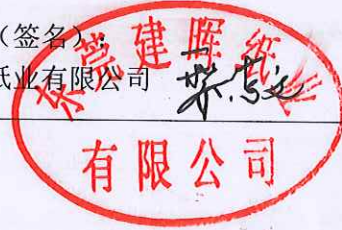 （签名）：
纸业有限公司
东莞建晖纸业
有限公司